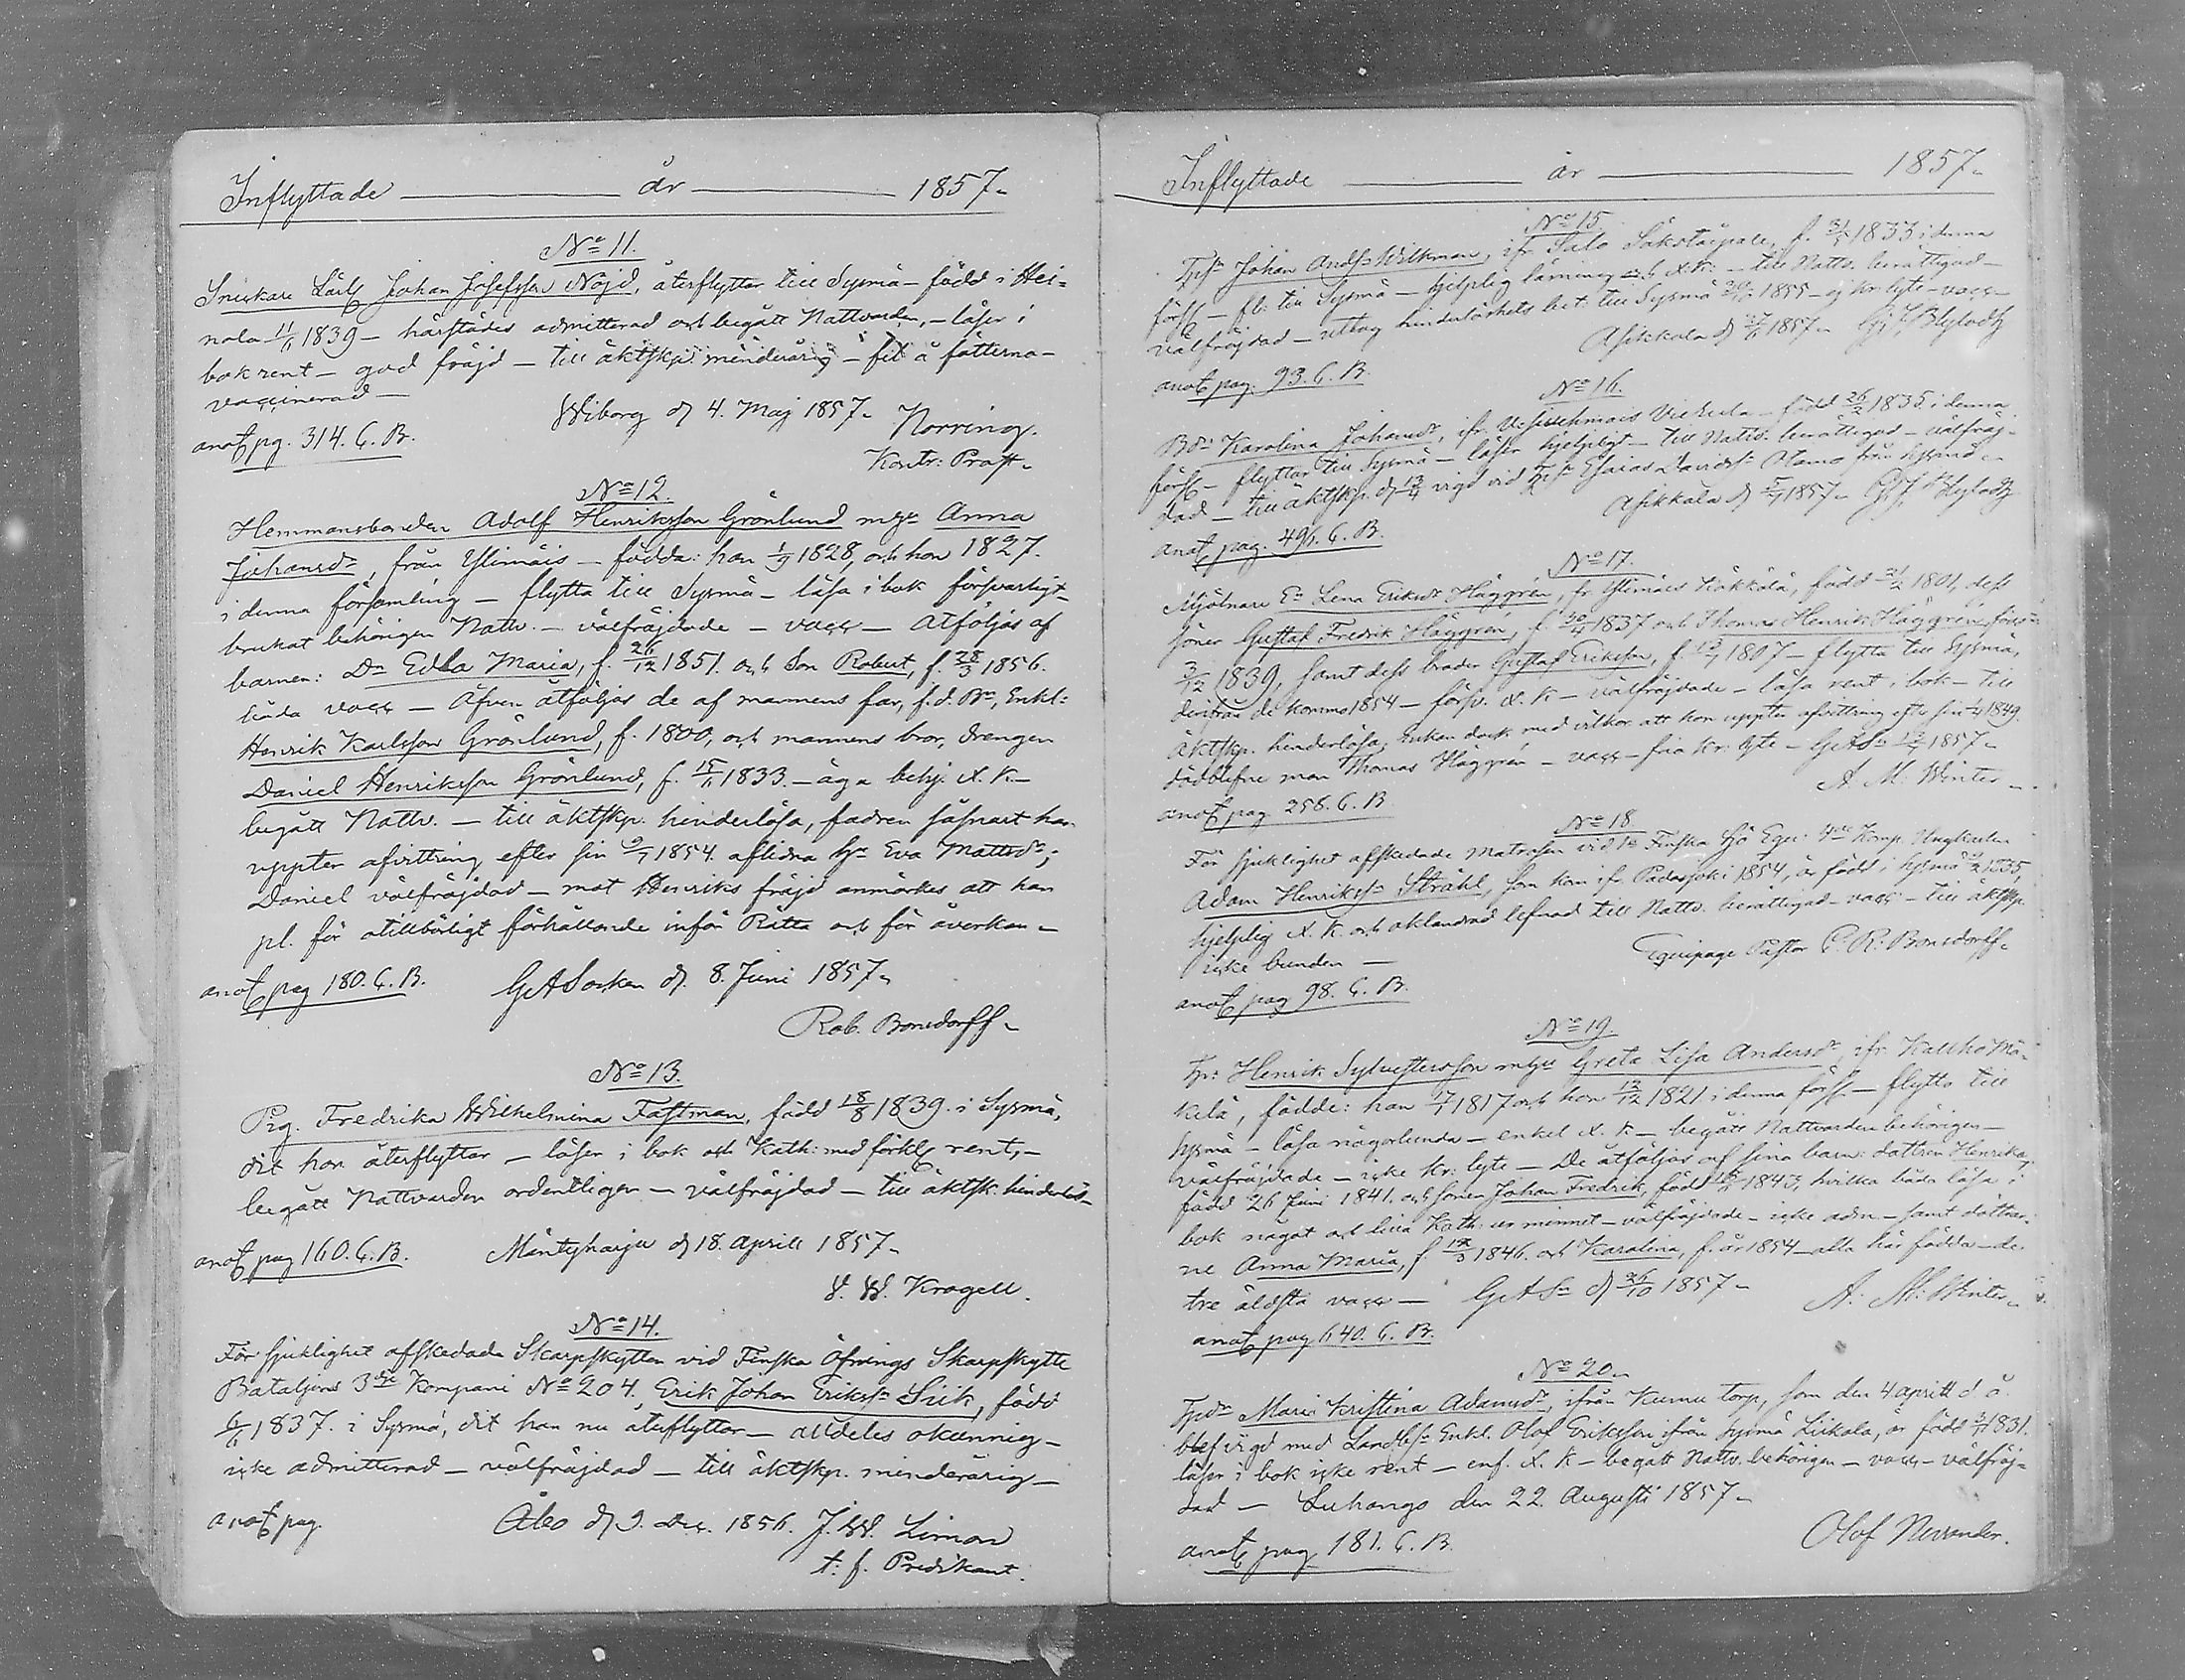 Inflyttade ——— år ——— 1857.
No 11.
Snickare Lärl. Johan Josefsson Nöjd, återflyttar till Sysmä – född i Hei=
nola 11/11 1839 – härstädes admitterad och begått Nattvarden, – läser i
bok rent – god fräjd – till äktskp. minderårig – fel å fötterna –
vaccinerad –
Wiborg d. 4. Maj 1857.
Norring.
anot. pg. 314. C. B.
Kontr: Prost.
No 12.
Hemmansbonden Adolf Henriksson Grönlund m. h. Anna
Johansdr, från Ylimäis – födda: han 1/9 1828, och hon 1827.
i denna församling – flytta till Sysmä – läsa i bok försvarligt
brukat behörigen Nattv. – välfräjdade – vacc – Åtföljas af
barnen: Dr Edla Maria, f. 26/12 1851. och Son Robert, f. 28/3 1856.
båda vacc – Äfven åtföljas de af mannens far, f. d. Bn, Enkl:
Henrik Karlsson Grönlund, f. 1800, och mannens bror, drengen
Daniel Henriksson Grönlund, f. 15/11 1833. – äga behj. X. K. –
begått Nattv. – till äktskp. hinderlösa, fadren såsnart han
uppter afvittring efter sin 9/7 1854. aflidna h. Eva Mattsdr;
Daniel välfräjdad – mot Henriks fräjd anmärkes att han
pl. för otillbörligt förhållande inför Rätta och för åverkan –
anot. pag 180. C. B.
GASocken d. 8. Juni 1857.
Rob. Bonsdorff.
No 13.
Pig. Fredrika Wilhelmina Fastman, född 18/8 1839. i Sysmä,
dit hon återflyttar – läser i bok och Kath: med förkl. rent, –
begått Nattvarden ordentligen – välfräjdad – till äktsk. hinderlös –
anot. pag 160. C. B.
Mäntyharju d. 18. Aprill 1857.
W. Krogell.
No 14.
För sjuklighet afskedade Skarpskytten vid Finska Öfnings Skarpskytte
Bataljons 3dje Kompani No 204, Erik Johan Erikss. Siik, född
6/11 1837. i Sysmä, dit han nu återflyttar – alldeles okunnig –
icke admitterad – välfräjdad – till äktskp. minderårig –
anot. pag.
Åbo d. 9. Dec. 1856. J. W. Limon
t. f. Predikant.
Inflyttade ——— år ——— 1857.
No 15
Johan Ands Wilkman, ifr. Salo f. 1833 i denna
förs. – fl. till Sysmä – hjelplig läsning och X. K. – till Nattv. berättigad –
välfräjdad – uttog hinderlöshets bet. till Sysmä 1855 – ej kr. lyte – vacc –
Asikkala d. 1857.
anot. pag. 93. C. B.
No 16.
Karolina Johansdr, ifr. född 26/2 1835 i denna
förs. – flyttar till Sysmä – läser hjelpligt – till Nattv. berättigad – välfräj-
dad – till äktskp. d. vigd vid Esaias Davids från Sysmä –
Asikkala d. 1857.
anot. pag. 496. C. B.
No 17.
Mjölnare E. Lena Eriksdr Häggrén, fr. Ylimäis född 1801, dess
söner Gustaf Fredrik Häggrén, f. 1837 och Thomas Henrik Häggrén född
3/12 1839, samt dess broder Gustaf Eriksson, f. 1807 – flytta till Sysmä,
derifrån de kommo 1854 – försv. X. K – välfräjdade – läsa rent i bok – till
äktskp. hinderlösa, enkan dock med vilkor att hon uppter afvittring efter sin 1849.
dödblefne man Thomas Häggrén – vacc – fria kr. lyte – GAS. 1857.
A. M. Winter
anot. pag 258. C. B.
No 18
För sjuklighet afskedade Matrosen vid 1a Finska Sjö Equi: Komp. Ungkarlen
Adam Henrikss. Stråhl, som kom ifr. Padasjoki 1854, är född i Sysmä 1835,
hjelplig X. K. och oklandrad lefnad till Nattv. berättigad – vacc – till äktskp.
icke bunden –
Equipage Pastor C. R. Bonsdorff.
anot. pag 98. C. B.
No 19.
Henrik Sylvestersson m. h. Greta Lisa Andersdr, ifr. Kalkho Mä-
kelä, födde: han 1817 och hon 1821 i denna förs. – flytta till
Sysmä – läsa någorlunda – enkel X. K – begått Nattvarden behörigen –
välfräjdade – icke kr: lyte – De åtföljas af sina barn: dottren Henrika,
född 26 Juni 1841. och sonen Johan Fredrik, född 1843, hvilka båda läsa i
bok något och lilla Kath: ur minnet – välfräjdade – icke adm – samt döttrar-
ne Anna Maria, f. 1846. och Karolina, f. år 1854 – alla här födda – de
tre äldsta vacc – GAS. d. 26/10 1857.
A. M. Winter.
anot. pag 640. C. B.
No 20.
Maria Kristina Adamsdr, ifrån Kumu torp, som den 4 aprill d. å.
blef vigd med Enkl. Olof Eriksson ifrån Sysmä Liikola, är född 1831.
läser i bok icke rent – enf. X. K – begått Nattv. behörigen – vacc – välfräj-
dad – Luhango den 22 Augusti 1857.
Olof Neovander.
anot. pag 181. C. B.